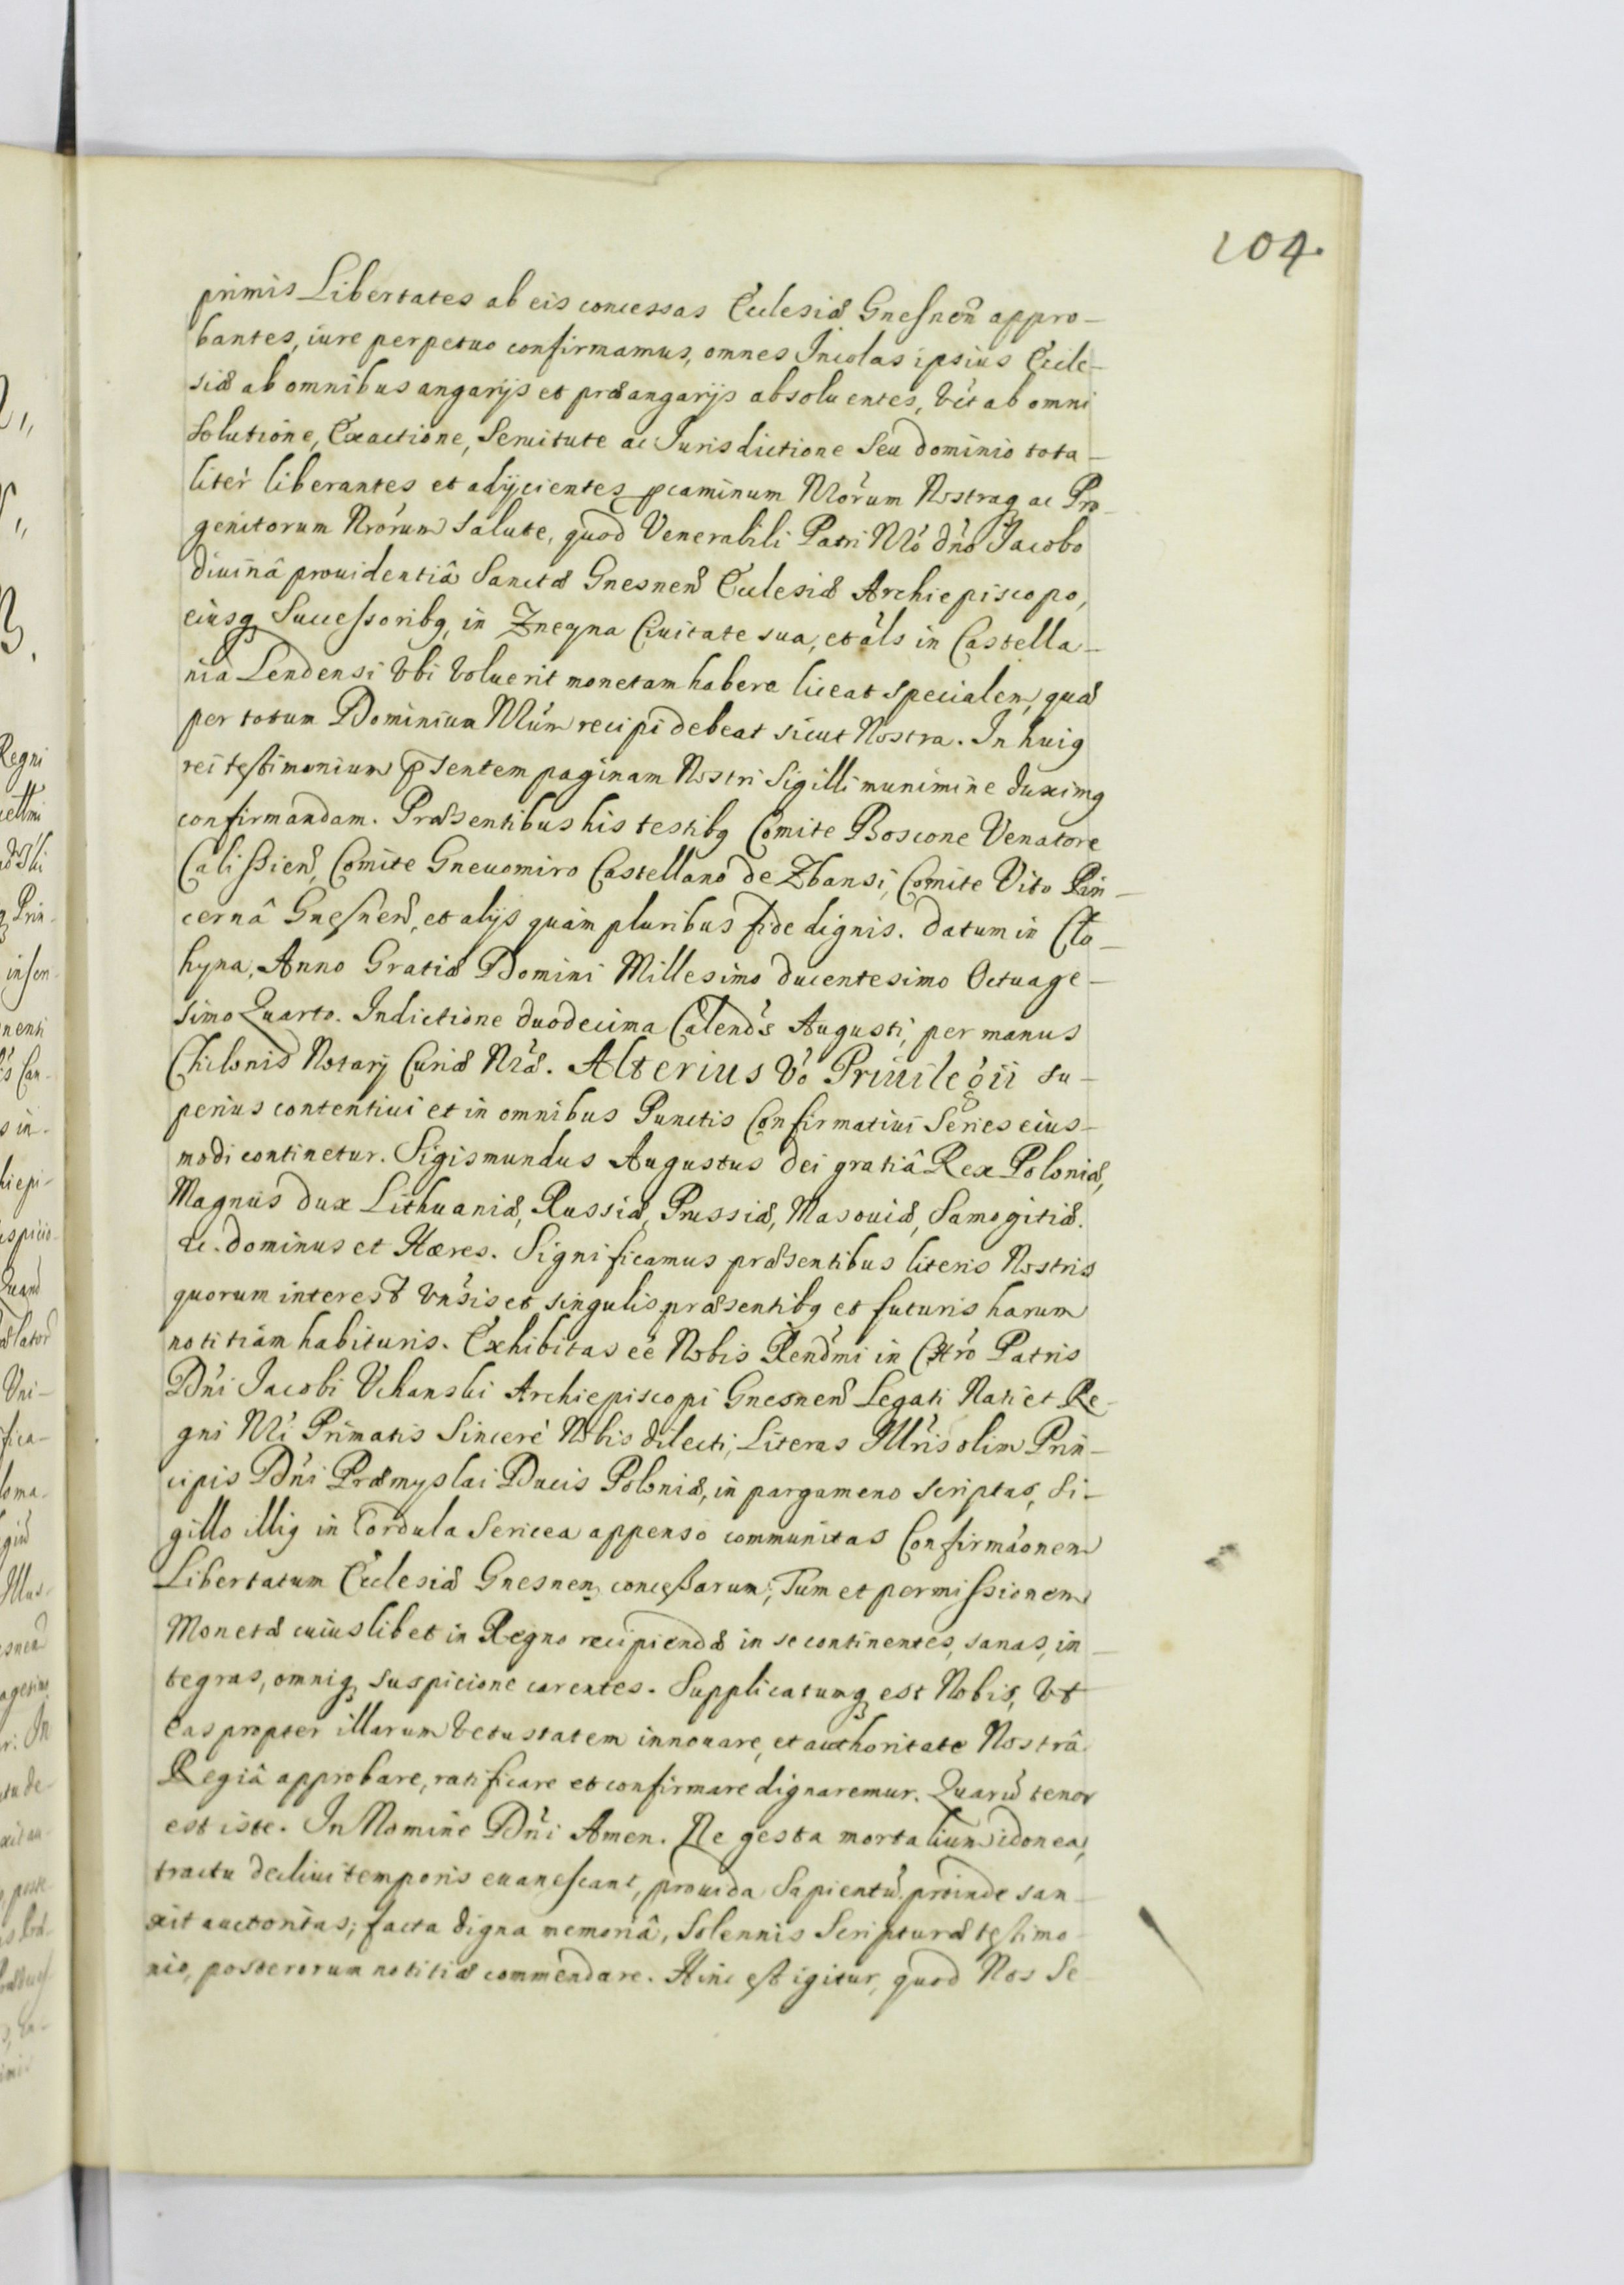 104.
primis Libertates ab eis concessas Ecclesiæ Gnesnen̄ appro-
bantes, iure perpetuo confirmamus, omnes Incolas ipsius Eccle-
siæ ab omnibus angarijs et præangarijs absoluentes, Vĕt ab omni
solutione, Exactione, Seruitute ac Jurisdictione seu dominio tota-
liter liberantes et adijcientes pcaminum Nrōrum Nostraq ac Pro-
genitorum Nrōrum salute, quod Venerabili Patri Nrō dnō Jacobo
diuinâ prouidentiâ Sanctæ Gnesnen Ecclesiæ Archiepiscopo,
eiusq Successoribq, in Znegna Ciuitate sua, et als in Castella-
nia Lendensi Vbi Voluerit monetam habere liceat specialem, quæ
per totum Dominium Nrūm recipi debeat sicut Nostra. In huiq
rei testimonium psentem paginam Nostri Sigilli munimine duximq
confirmandam. Præsentibus his testibq Comite Boscone Venatore
Calissien, Comite Gneuomiro Castellano de Zbansi, Comite Vito Pin-
cernâ Gnesnen, et alijs quàm pluribus fide dignis. datum in Clo-
hyna, Anno Gratiæ Domini Millesimo ducentesimo Octuage-
simo Quarto. Indictione duodecima Calend̄s Augusti, per manus
Chilonis Notarij Curiæ Nrǣ. Alterius Vō Priuilegii su-
perius contentiui et in omnibus Punctis Confirmatiui Series eius-
modi continetur. Sigismundus Augustus dei gratiâ Rex Poloniæ,
Magnus dux Lithuaniæ, Russiæ, Prussiæ, Masouiæ, Samogitiæ.
&c. dominus et Hæres. Significamus præsentibus literis Nostris
quorum interest Vnsis et singulis præsentibq et futuris harum
notitiam habituris. Exhibitas eē Nobis Rend̄mi in Chrō Patris
Dn̄i Jacobi Vchanski Archiepiscopi Gnesnen Legati Nati et Re-
gni Nrī Primatis Sincerè Nobis dilecti, Literas Illrīs olim Prin-
cipis Dn̄i Præmyslai Ducis Poloniæ, in pargameno scriptas, Si-
gillo illiq in Cordula Sericea appenso communitas Confirmaōnem
Libertatum Ecclesiæ Gnesnen concessarum; Tum et permissionem
Monetæ cuiuslibet in Regno recipiendæ in se continentes, sanas, in-
tegras, omniq suspicione carentes. Supplicatumq est Nobis, Vt
eas propter illarum Vetustatem innouare, et authoritate Nostrâ
Regiâ approbare, ratificare et confirmare dignaremur. Quarū tenor
est iste. In Nomine Dn̄i Amen. Ne gesta mortalium idonea,
tractu decliui temporis euanescant, prouida Sapientū proinde san-
xit auctoritas; facta digna memoriâ, Solennis Scripturæ testimo-
nio, posterorum notitiæ commendare. Hinc est igitur, quod Nos Se-